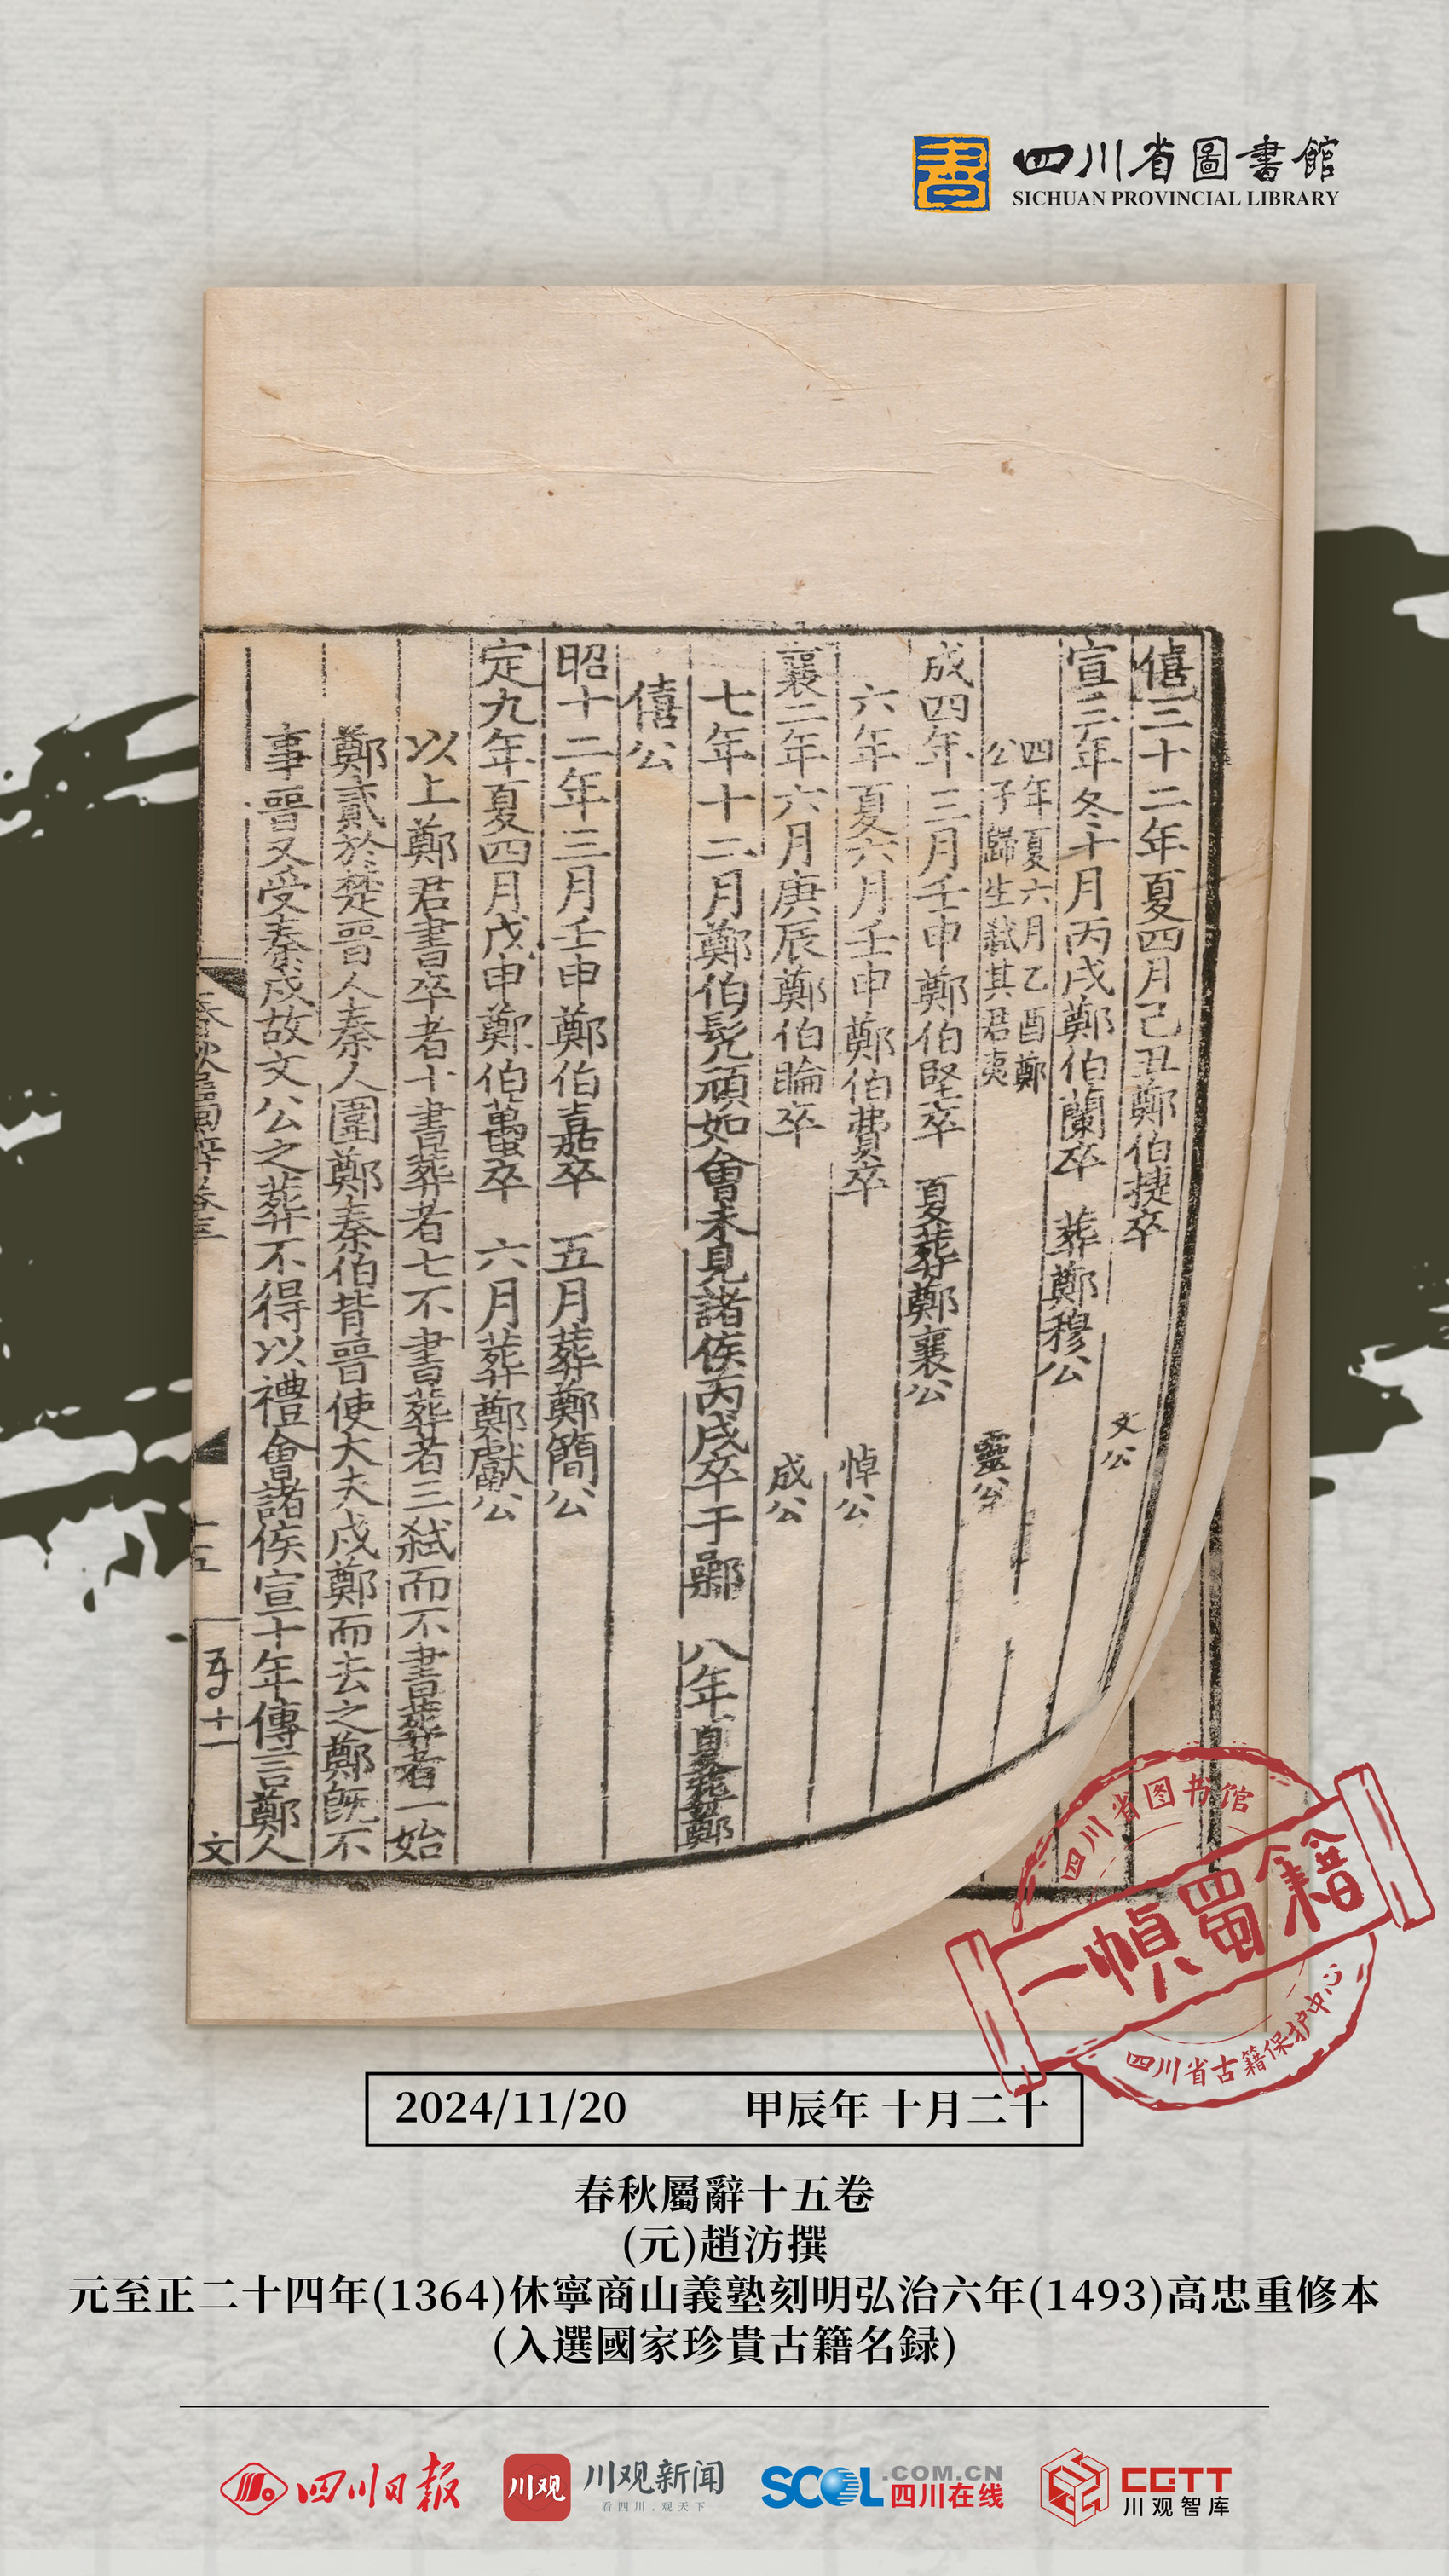 四川省圖書館
SICHUAN PROVINCIAL LIBRARY
僖三十二年夏四月己丑鄭伯捷卒 文公
宣三年冬十月丙戌鄭伯蘭卒 葬鄭穆公
四年夏六月乙酉鄭
公子歸生弑其君夷 靈公
成四年三月壬申鄭伯堅卒 夏葬鄭襄公
六年夏六月壬申鄭伯費卒 悼公
襄二年六月庚辰鄭伯睔卒 成公
七年十二月鄭伯髠頑如會未見諸侯丙戌卒于鄵 八年夏葬鄭
僖公
昭十二年三月壬申鄭伯嘉卒 五月葬鄭簡公
定九年夏四月戊申鄭伯蠆卒 六月葬鄭獻公
以上鄭君書卒者十書葬者七不書葬者三弑而不書葬者一始
鄭貳於楚晉人秦人圍鄭秦伯背晉使大夫戍鄭而去之鄭旣不
事晉又受秦戍故文公之葬不得以禮會諸侯宣十年傳言鄭人
春秋屬辭卷三
十五
十一
文
四川省图书馆
一幀蜀籍
四川省古籍保护中心
2024/11/20 甲辰年 十月二十
春秋屬辭十五卷
(元)趙汸撰
元至正二十四年(1364)休寧商山義塾刻明弘治六年(1493)高忠重修本
(入選國家珍貴古籍名録)
四川日报
川观
川观新闻
看四川,观天下
SCOL.COM.CN
四川在线
CGTT
川观智库